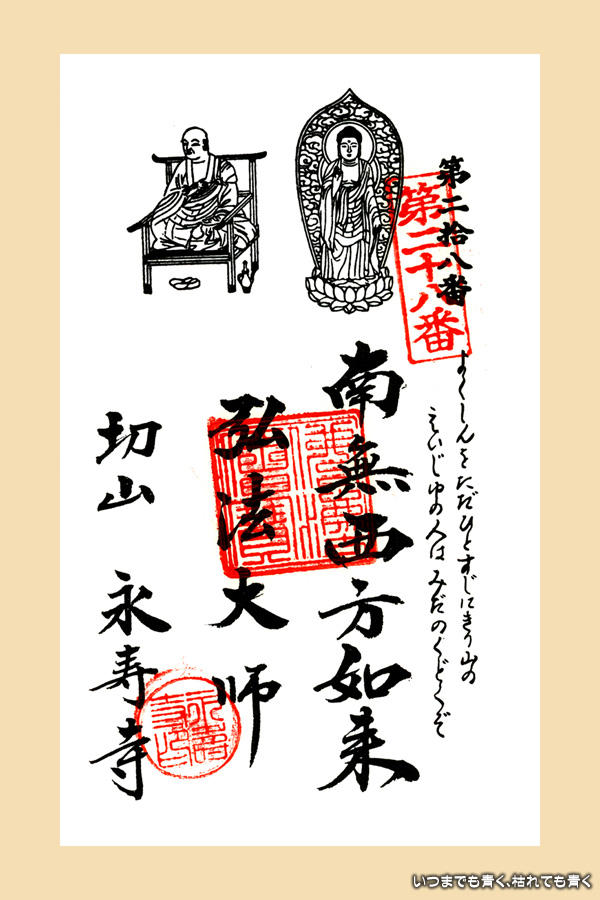 第二拾八番
第二十八番
よくしんをただひとすじにきり山の
えいじゆの人はみだのくどくぞ
南無西方如来
弘法大師
切山 永寿寺
いつまでも青く、枯れても青く